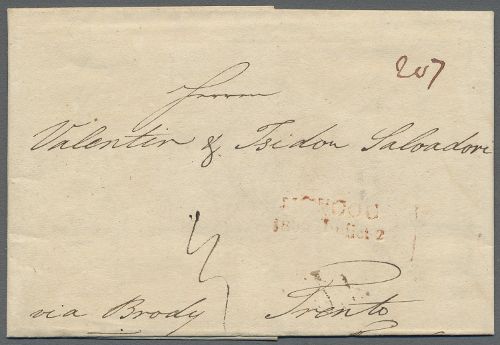 207
Herren
Valentin & Isidor Salvadori
via Brody Trento